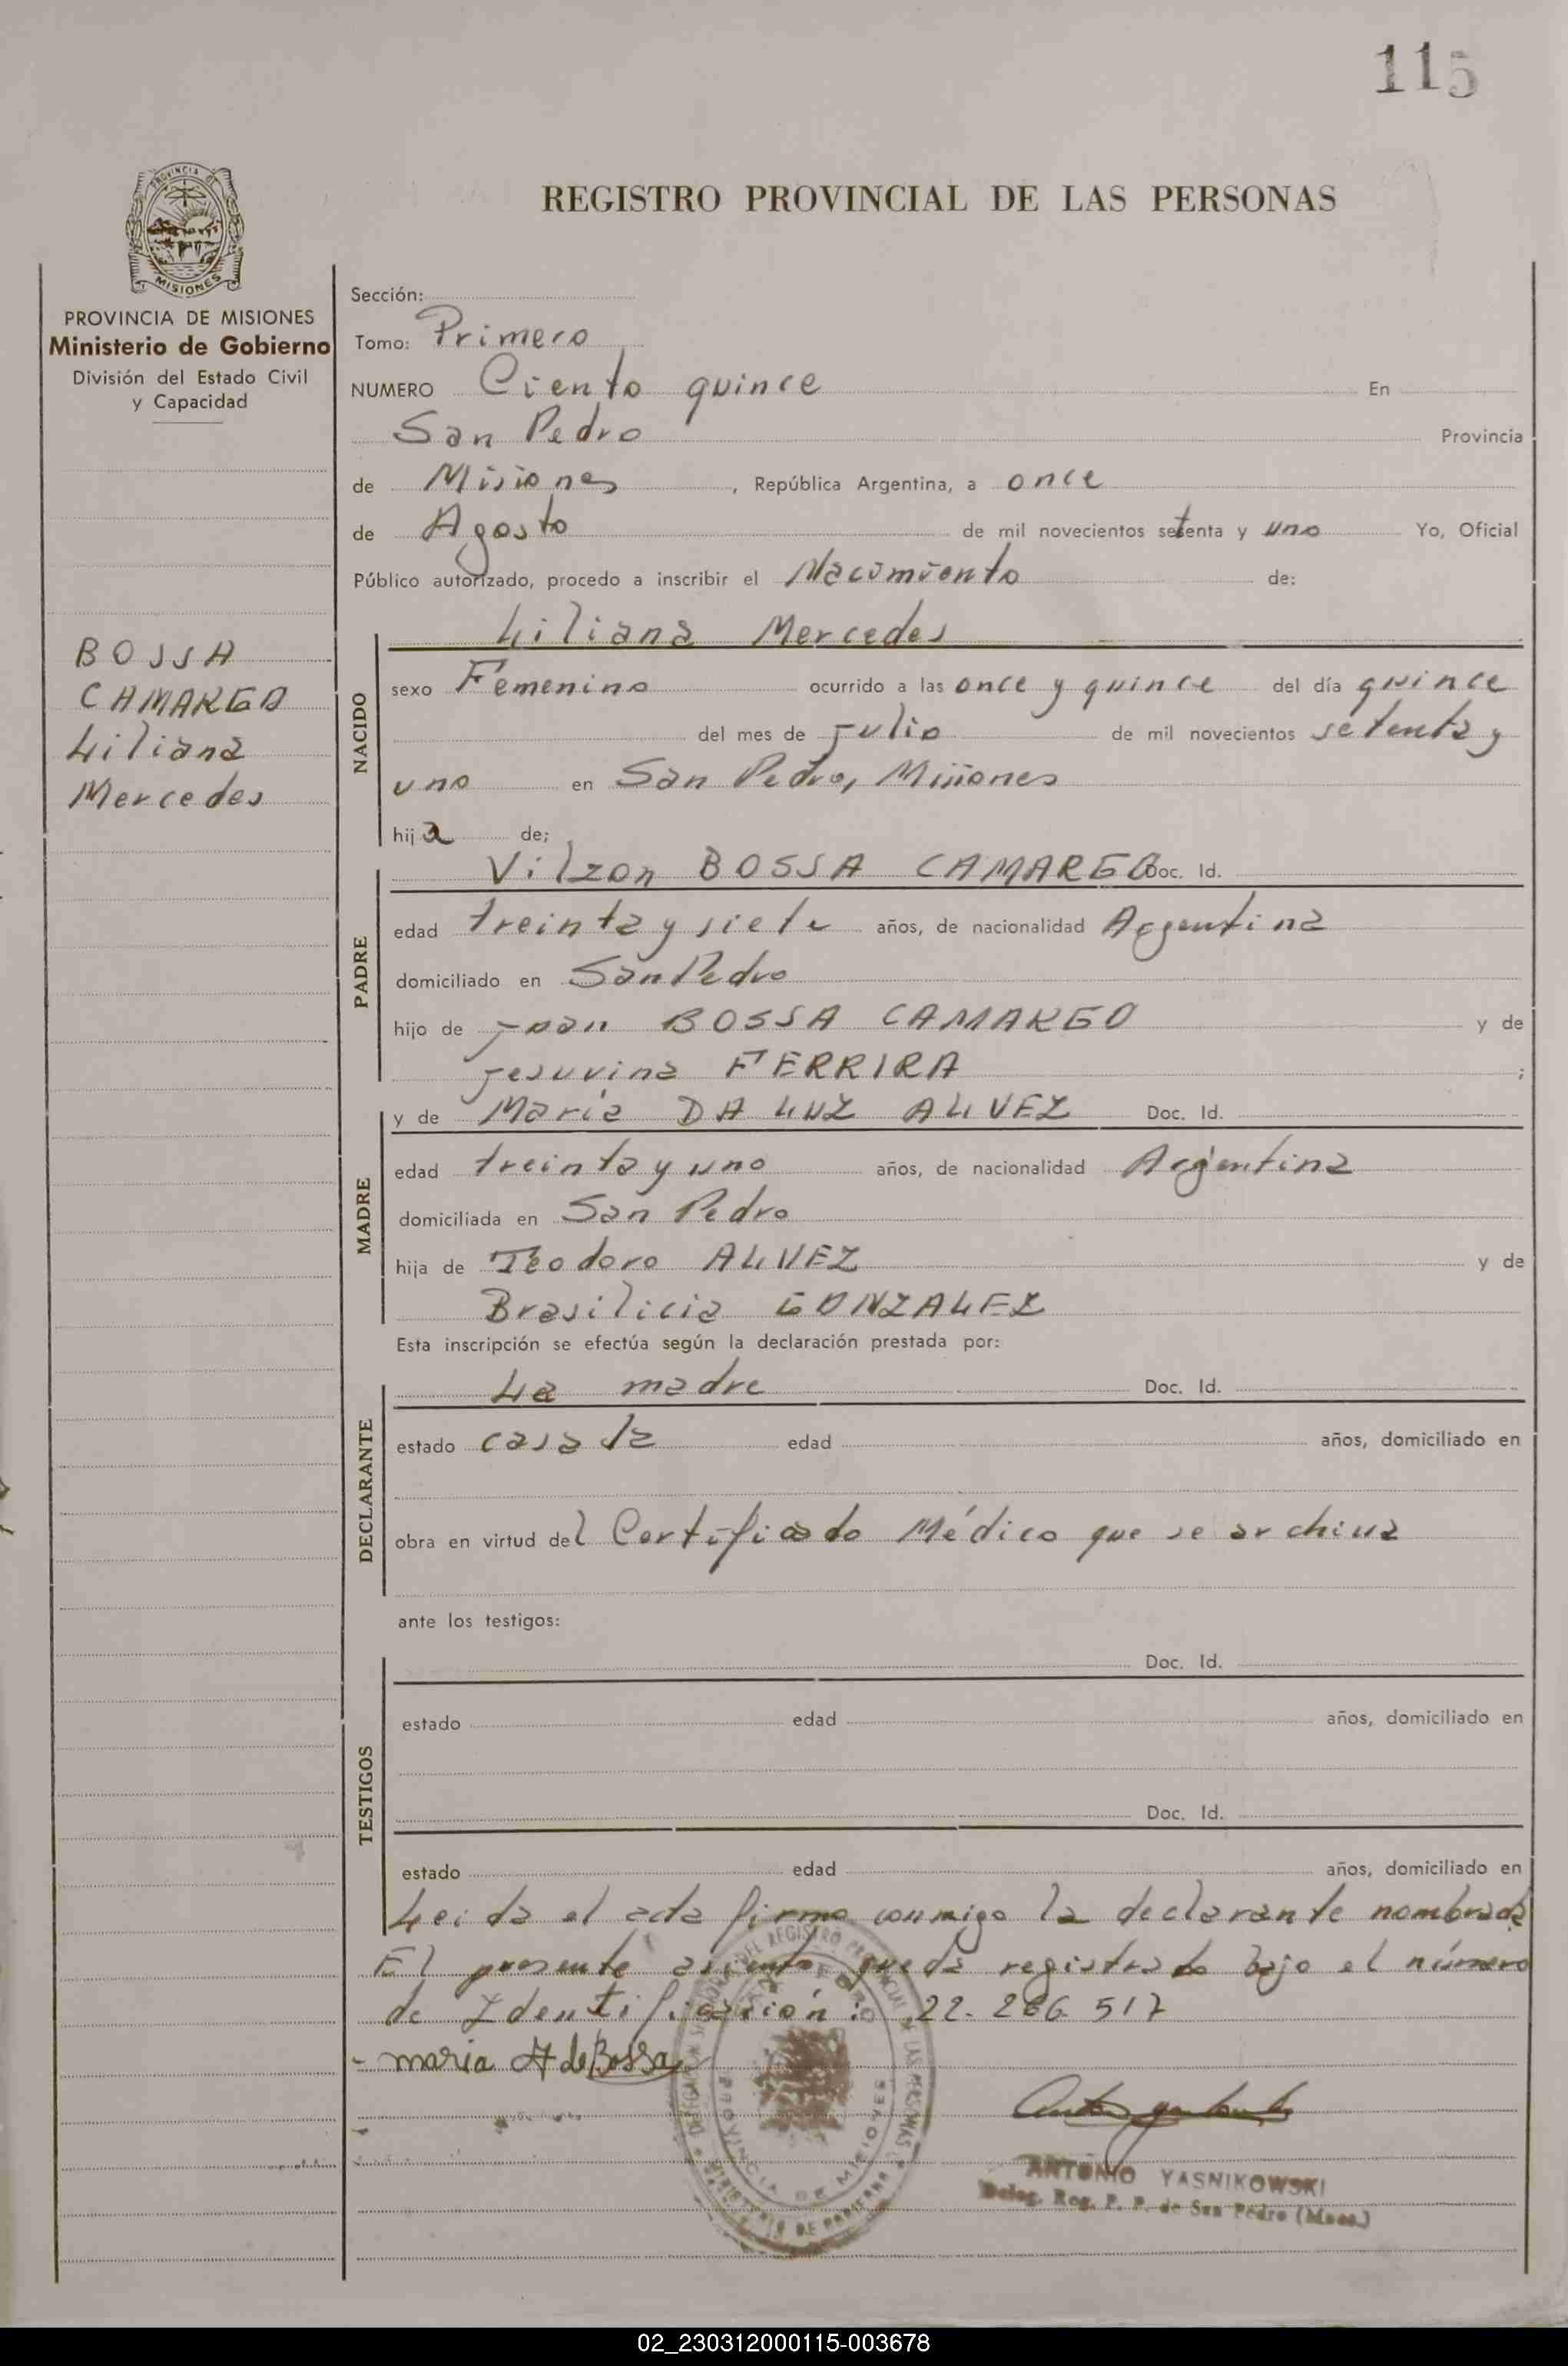 115
PROVINCIA DE
MISIONES
REGISTRO PROVINCIAL DE LAS PERSONAS
PROVINCIA DE MISIONES
Ministerio de Gobierno
División del Estado Civil
y Capacidad
BOSSA
CAMARGO
Liliana
Mercedes
Sección:
Tomo: Primero
NUMERO Ciento quince En
San Pedro Provincia
de Misiones, República Argentina, a once
de Agosto de mil novecientos setenta y uno Yo, Oficial
Público autorizado, procedo a inscribir el Nacimiento de:
NACIDO
Liliana Mercedes
sexo Femenino ocurrido a las once y quince del día quince
del mes de julio de mil novecientos setenta y
uno en San Pedro, Misiones
hija de;
PADRE
Vilzon BOSSA CAMARGO Doc. Id.
edad treinta y siete años, de nacionalidad Argentina
domiciliado en San Pedro
hijo de Juan BOSSA CAMARGO y de
Jesuvina FERRIRA ;
MADRE
y de María DA LUZ ALVEZ Doc. Id.
edad treinta y uno años, de nacionalidad Argentina
domiciliada en San Pedro
hija de Teodoro ALVEZ y de
Brasilicia GONZALEZ
Esta inscripción se efectúa según la declaración prestada por:
DECLARANTE
La madre Doc. Id.
estado casada edad años, domiciliado en
obra en virtud del Certificado Médico que se archiva
ante los testigos:
TESTIGOS
Doc. Id.
estado edad años, domiciliado en
Doc. Id.
estado edad años, domiciliado en
Leida el acta firma conmigo la declarante nombrada
El presente asiento queda registrado bajo el número
de Identificación: 22.266 517
maria A de Bossa
DEL REGISTRO PROVINCIAL DE LAS PERSONAS
PROVINCIA DE MISIONES
ANTONIO YASNIKOWSKI
Deleg. Reg. P. P. de San Pedro (Mnes.)
02_230312000115-003678